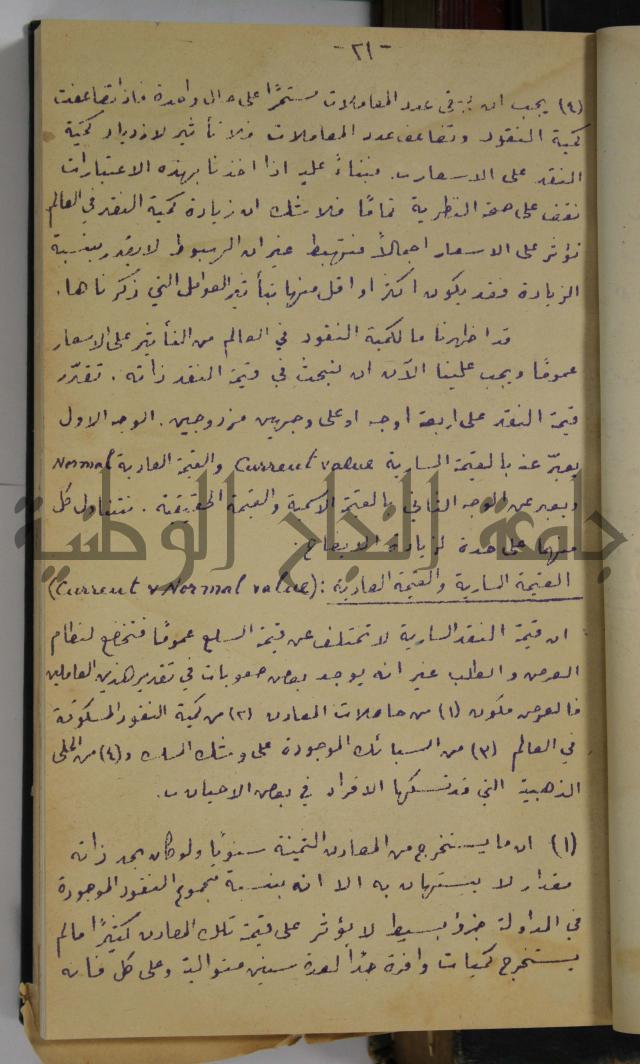 -٢١-
(٩) يجب ان يبقى عدد المعاملات مستمرًا على حال واحدة فاذا تضاعفت
كمية النقود وتضاعف عدد المعاملات فلا تأثير لازدياد كمية
النقد على الاسعار. فبناءً عليه اذا اخذنا بهذه الاعتبارات
نقف على صحة النظرية تمامًا فلا شك ان زيادة كمية النقد في العالم
تؤثر على الاسعار اجمالاً فتهبط غير ان الهبوط لا يقدر بنسبة
الزيادة فقد يكون اكثر او اقل منها بتأثير العوامل التي ذكرناها.
قد اظهرنا ما لكمية النقود في العالم من التأثير على الاسعار
عمومًا ويجب علينا الآن ان نبحث في قيمة النقد ذاته. تقدّر
قيمة النقد على اربعة اوجه او على وجهين مزدوجين. الوجه الاول
يعبّر عنه بالقيمة السارية Current value والقيمة العادية Normal
ويعبر عن الوجه الثاني بالقيمة الاسمية والقيمة الحقيقية. فنتناول كل
منهما على حدة لزيادة الايضاح.
القيمة السارية والقيمة العادية: (Current & Normal value)
ان قيمة النقد السارية لا تختلف عن قيمة السلع عمومًا فتخضع لنظام
العرض والطلب غير انه يوجد بعض صعوبات في تقدير هذين العاملين
فالعرض مكون (١) من حاصلات المعادن (٢) من كمية النقود المسكوكة
في العالم (٣) من السبائك الموجودة على وشك السك و(٤) من الحلى
الذهبية التي قد تسكها الافراد في بعض الاحيان.
(١) ان ما يستخرج من المعادن الثمينة سنويًا ولو كان بحد ذاته
مقدار لا يستهان به الا انه بنسبة مجموع النقود الموجودة
في المداولة جزؤ بسيط لا يؤثر على قيمة تلك المعادن كثيرًا ما لم
يستخرج كميات وافرة جدًا لعدة سنين متوالية وعلى كل فانه
جامعة النجاح الوطنية